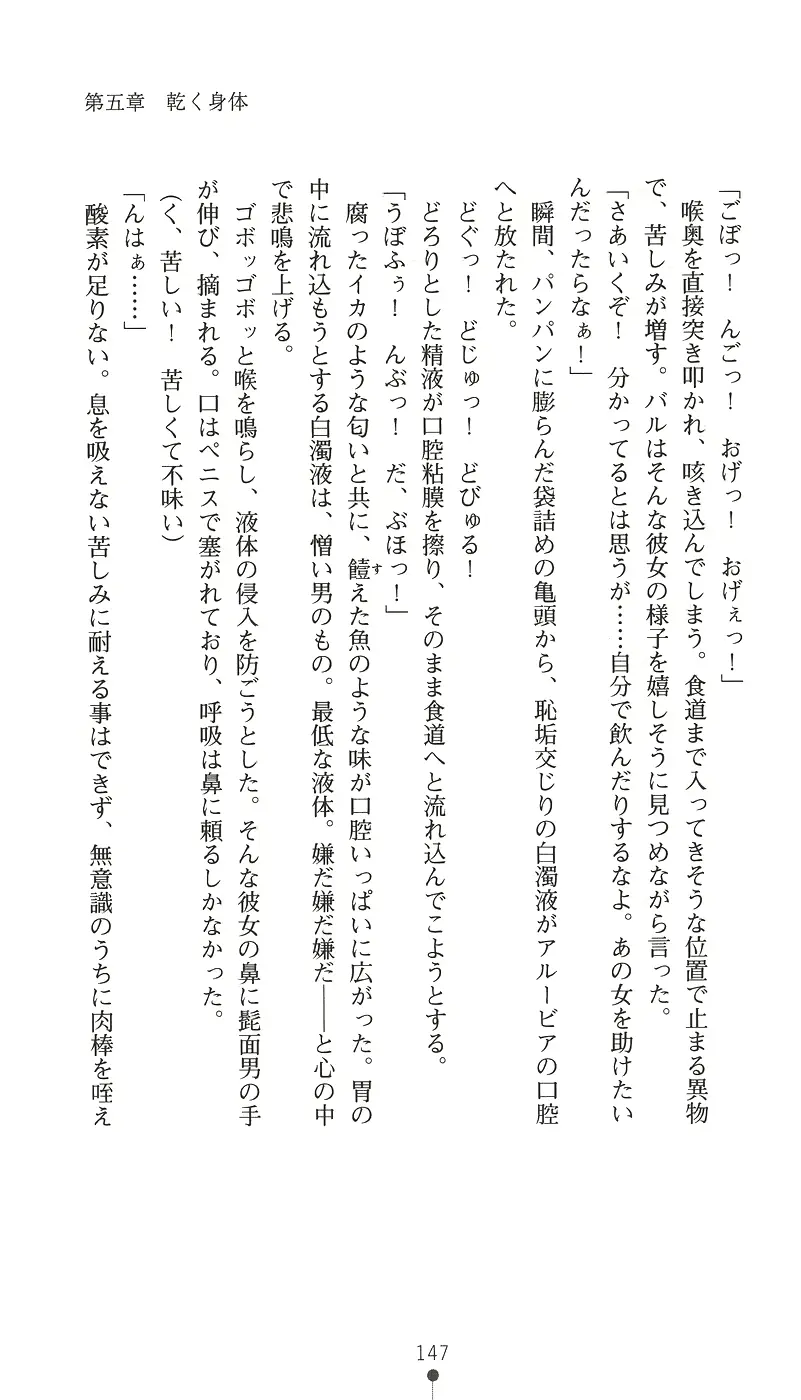 第五章　乾く身体
「ごぼっ！　んごっ！　おげっ！　おげぇっ！」
　喉奥を直接突き叩かれ、咳き込んでしまう。食道まで入ってきそうな位置で止まる異物
で、苦しみが増す。バルはそんな彼女の様子を嬉しそうに見つめながら言った。
「さあいくぞ！　分かってるとは思うが……自分で飲んだりするなよ。あの女を助けたい
んだったらなぁ！」
　瞬間、パンパンに膨らんだ袋詰めの亀頭から、恥垢交じりの白濁液がアルービアの口腔
へと放たれた。
　どぐっ！　どじゅっ！　どびゅる！
　どろりとした精液が口腔粘膜を擦り、そのまま食道へと流れ込んでこようとする。
「うぼふぅ！　んぶっ！　だ、ぶほっ！」
　腐ったイカのような匂いと共に、饐えた魚のような味が口腔いっぱいに広がった。胃の
中に流れ込もうとする白濁液は、憎い男のもの。最低な液体。嫌だ嫌だ嫌だ――と心の中
で悲鳴を上げる。
　ゴボッゴボッと喉を鳴らし、液体の侵入を防ごうとした。そんな彼女の鼻に髭面男の手
が伸び、摘まれる。口はペニスで塞がれており、呼吸は鼻に頼るしかなかった。
（く、苦しい！　苦しくて不味い）
「んはぁ……」
　酸素が足りない。息を吸えない苦しみに耐える事はできず、無意識のうちに肉棒を咥え
147